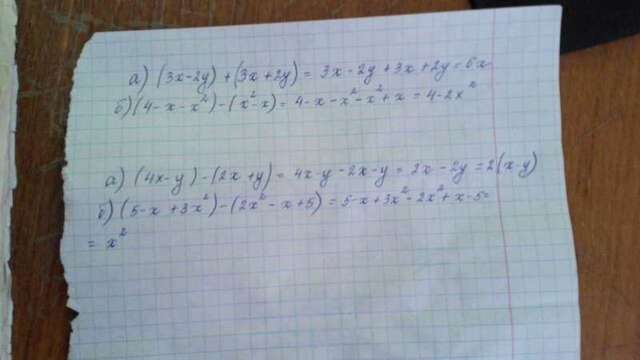 а) (3x-2y)+(3x+2y)= 3x-2y+3x+2y=6x
б) (4-x-x²)-(x²-x)= 4-x-x²-x²+x = 4-2x²
а) (4x-y)-(2x+y)= 4x-y-2x-y= 2x-2y=2(x-y)
б) (5-x+3x²)-(2x²-x+5)=5-x+3x²-2x²+x-5=
= x²